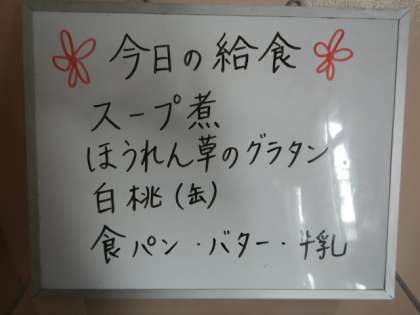 今日の給食
スープ煮
ほうれん草のグラタン
白桃(缶)
食パン・バター・牛乳